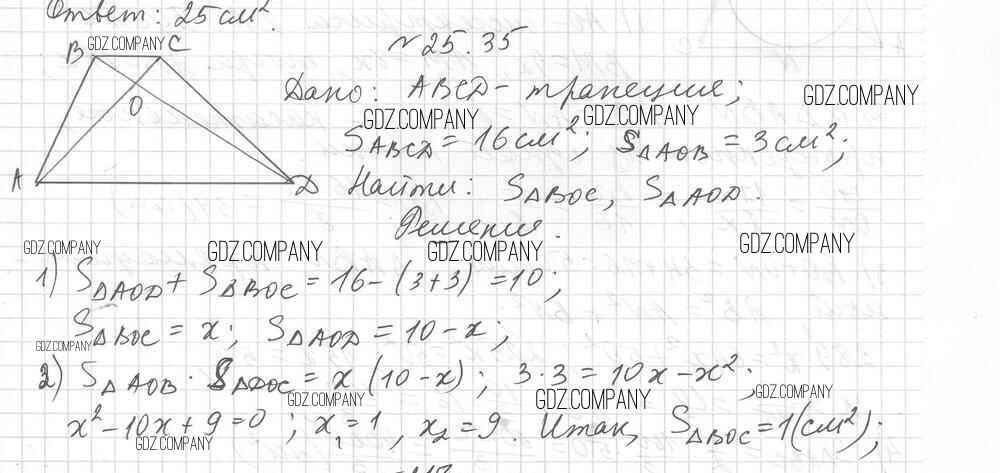 Ответ: 25 см².
№ 25.35
B GDZ.COMPANY C
O
A D
Дано: ABCD - трапеция;
GDZ.COMPANY
GDZ.COMPANY GDZ.COMPANY
S_ABCD = 16 см²; S_ΔAOB = 3 см²;
Найти: S_ΔBOC, S_ΔAOD.
Решение.
GDZ.COMPANY GDZ.COMPANY GDZ.COMPANY GDZ.COMPANY
1) S_ΔAOD + S_ΔBOC = 16 - (3+3) = 10;
S_ΔBOC = x; S_ΔAOD = 10 - x;
GDZ.COMPANY
2) S_ΔAOB · S_ΔDOC = x (10 - x); 3·3 = 10x - x²;
GDZ.COMPANY GDZ.COMPANY GDZ.COMPANY
x² - 10x + 9 = 0; x₁ = 1, x₂ = 9. Итак, S_ΔBOC = 1 (см²);
GDZ.COMPANY